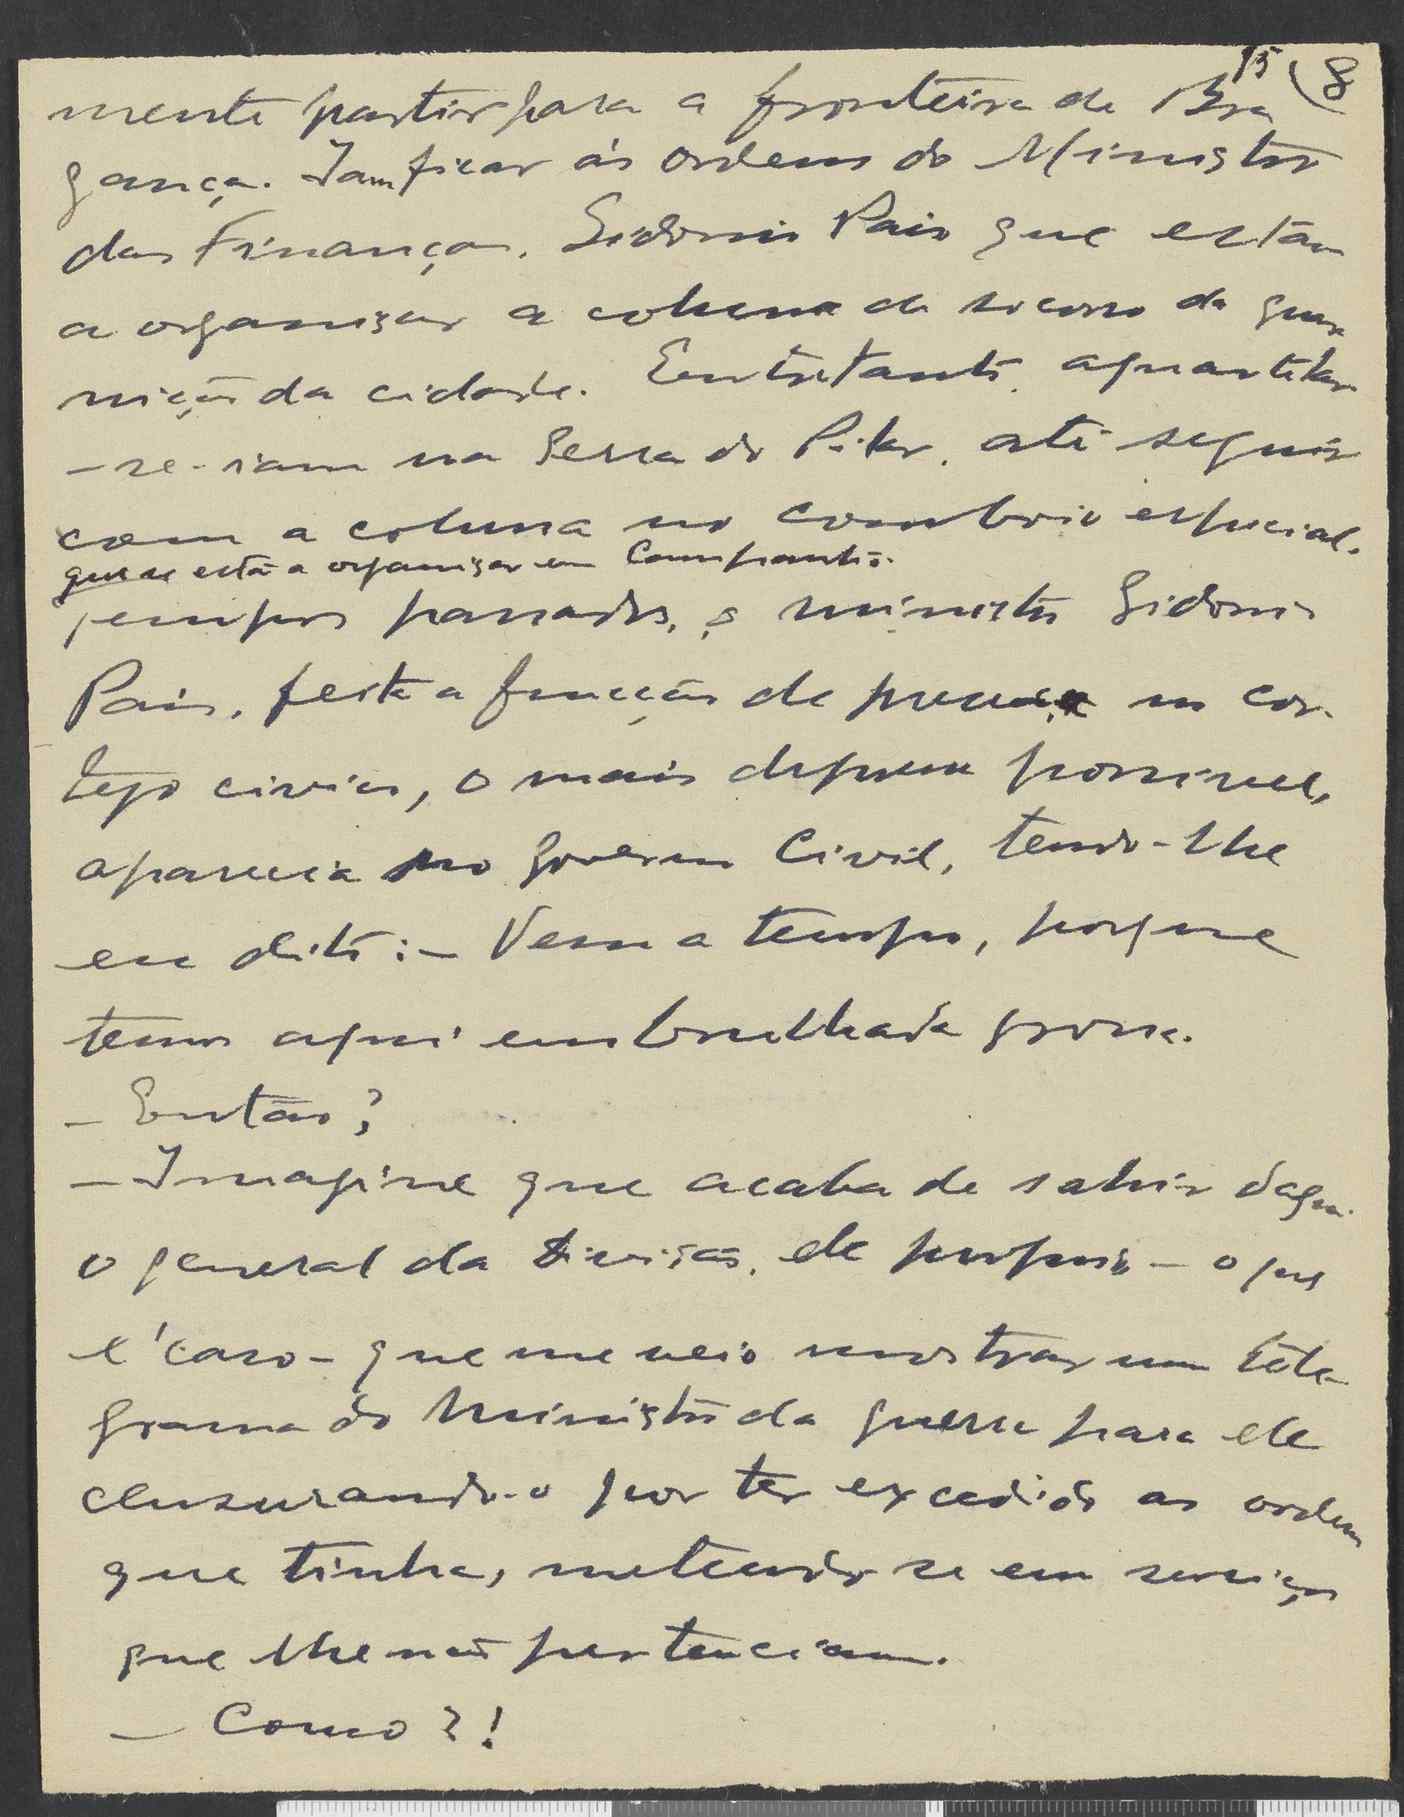 15 8
mente partir para a fronteira de Bra
gança. Iam ficar ás ordens do Ministro
das Finanças, Sidonio Pais que estava
a organisar a coluna de socorro da guar
nição da cidade. Entretanto, aquartelar
-se-iam na Serra do Pilar, até seguir
com a coluna no comboio especial.
que se está a organisar em Campanhã.
Tempos passados, o ministro Sidonio
Pais, feita a funcção de presença no cor-
tejo civico, o mais depressa possivel,
aparecia no governo Civil, tendo-lhe
eu dito: – Vem a tempo, porque
temos aqui embrulhada grossa.
– Então?
– Imagine que acaba de sahir daqui
o general da divisão, ele proprio – o que
é caso – que me veio mostrar um tele-
grama do Ministro da guerra para ele
censurando-o por ter excedido as ordens
que tinha, metendo se em serviços
que lhe não pertenciam.
– Como?!